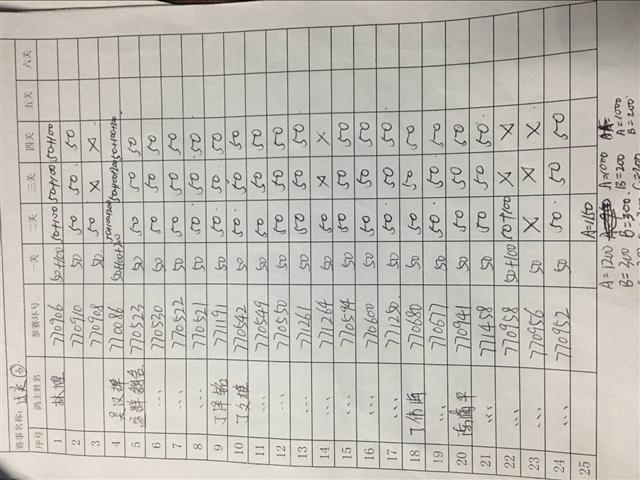 赛事名称: 过关③
序号 鸽主姓名 参赛环号 一关 二关 三关 四关 五关 六关
1 林旭 770906 50+100 50+100 50+100 50+100
2 … 770910 50 50 50 50
3 … 770908 50 50 X X
4 770086 50+100+200 50+100+200 50+100+200 50+100+200
5 770523 50 50 50 50
6 … 770530 50 50 50 50
7 … 770522 50 50 50 50
8 … 770521 50 50 50 50
9 771191 50 50 50 50
10 丁文雄 770542 50 50 50 50
11 … 770549 50 50 50 50
12 … 770550 50 50 50 50
13 … 771261 50 50 50 50
14 … 771264 50 50 X X
15 … 770594 50 50 50 50
16 … 770600 50 50 50 50
17 … 771250 50 50 50 50
18 770680 50 50 50 50
19 … 770677 50 50 50 50
20 770941 50 50 50 50
21 … 771458 50 50 50 50
22 … 770958 50+100 50+100 X X
23 … 770956 50 X X X
24 … 770952 50 50 50 50
25 A=1150
A=1200 A=1000 A=1000
B=200 B=300 B=200 B=200